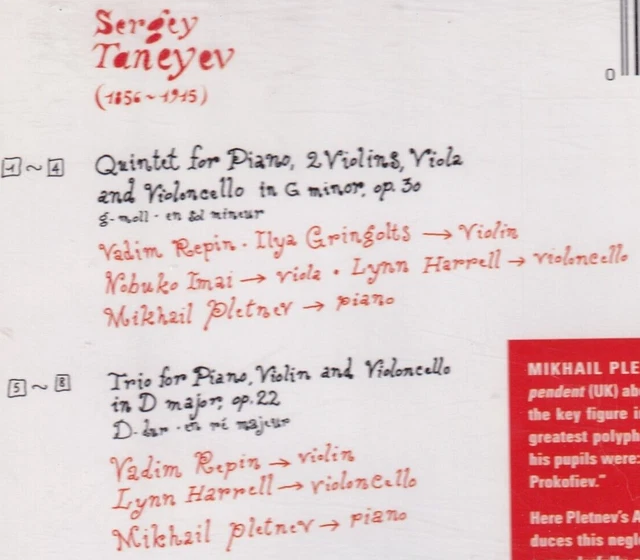 Sergey
Taneyev
(1856~1915)
0
1 ~ 4 Quintet for Piano, 2 Violins, Viola
and Violoncello in G minor, op. 30
g-moll · en sol mineur
Vadim Repin · Ilya Gringolts → Violin
Nobuko Imai → viola · Lynn Harrell → violoncello
Mikhail Pletnev → piano
5 ~ 8 Trio for Piano, Violin and Violoncello
in D major, op. 22
D-dur · en ré majeur
Vadim Repin → violin
Lynn Harrell → violoncello
Mikhail Pletnev → piano
MIKHAIL PLE
pendent (UK) ab
the key figure i
greatest polyph
his pupils were:
Prokofiev."
Here Pletnev's A
duces this negl